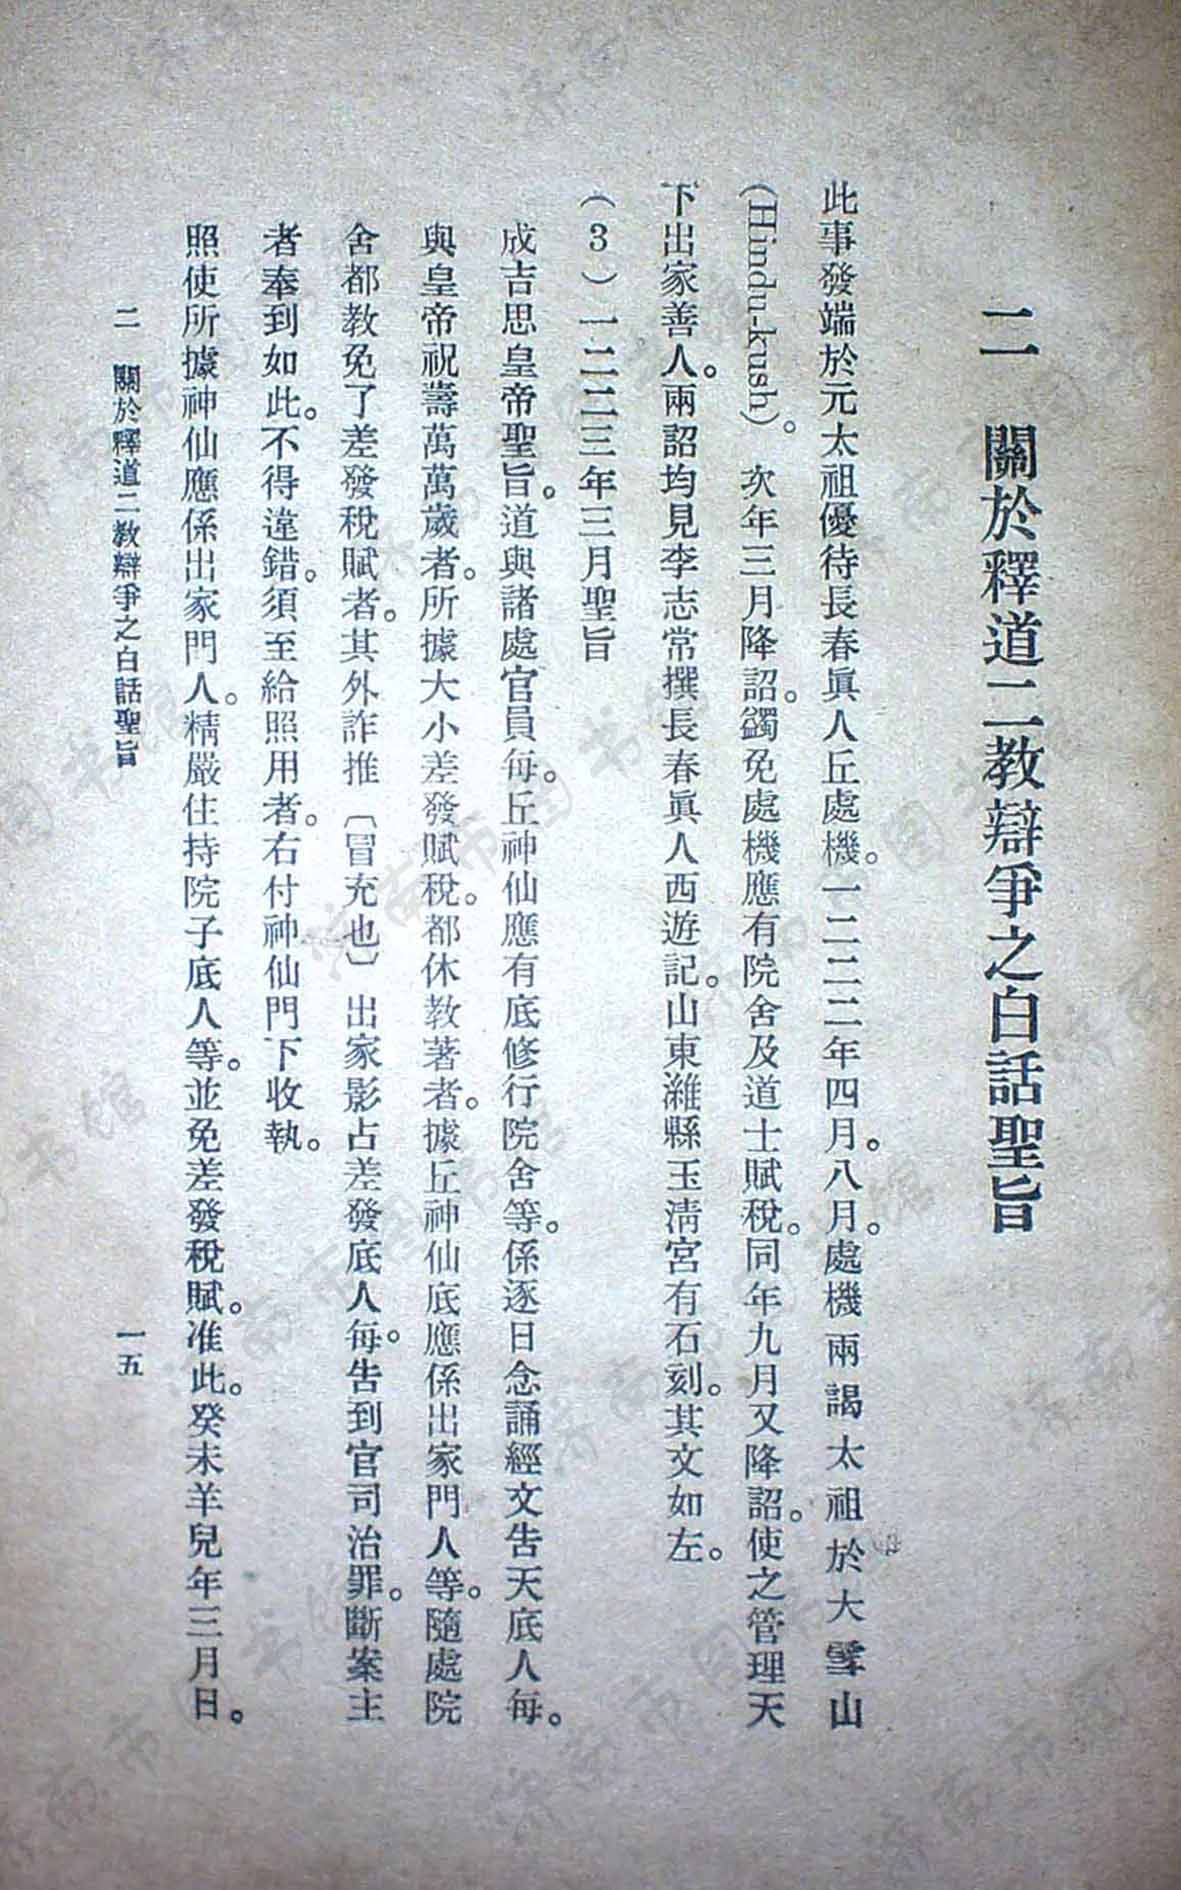 二　關於釋道二教辯爭之白話聖旨
此事發端於元太祖優待長春眞人丘處機。一二二二年四月。八月。處機兩謁太祖於大雪山
(Hindu-kush)。次年三月降詔。蠲免處機應有院舍及道士賦稅。同年九月又降詔。使之管理天
下出家善人。兩詔均見李志常撰長春眞人西遊記。山東濰縣玉淸宮有石刻。其文如左。
(3)一二二三年三月聖旨
成吉思皇帝聖旨。道與諸處官員每。丘神仙應有底修行院舍等。係逐日念誦經文告天底人每。
與皇帝祝壽萬萬歲者。所據大小差發賦稅。都休教著者。據丘神仙底應係出家門人等。隨處院
舍都教免了差發稅賦者。其外詐推〔冒充也〕出家影占差發底人每。告到官司治罪。斷案主
者奉到如此。不得違錯。須至給照用者。右付神仙門下收執。
照使所據神仙應係出家門人。精嚴住持院子底人等。並免差發稅賦。准此。癸未羊兒年三月日。
二　關於釋道二教辯爭之白話聖旨　一五
济南市图书馆